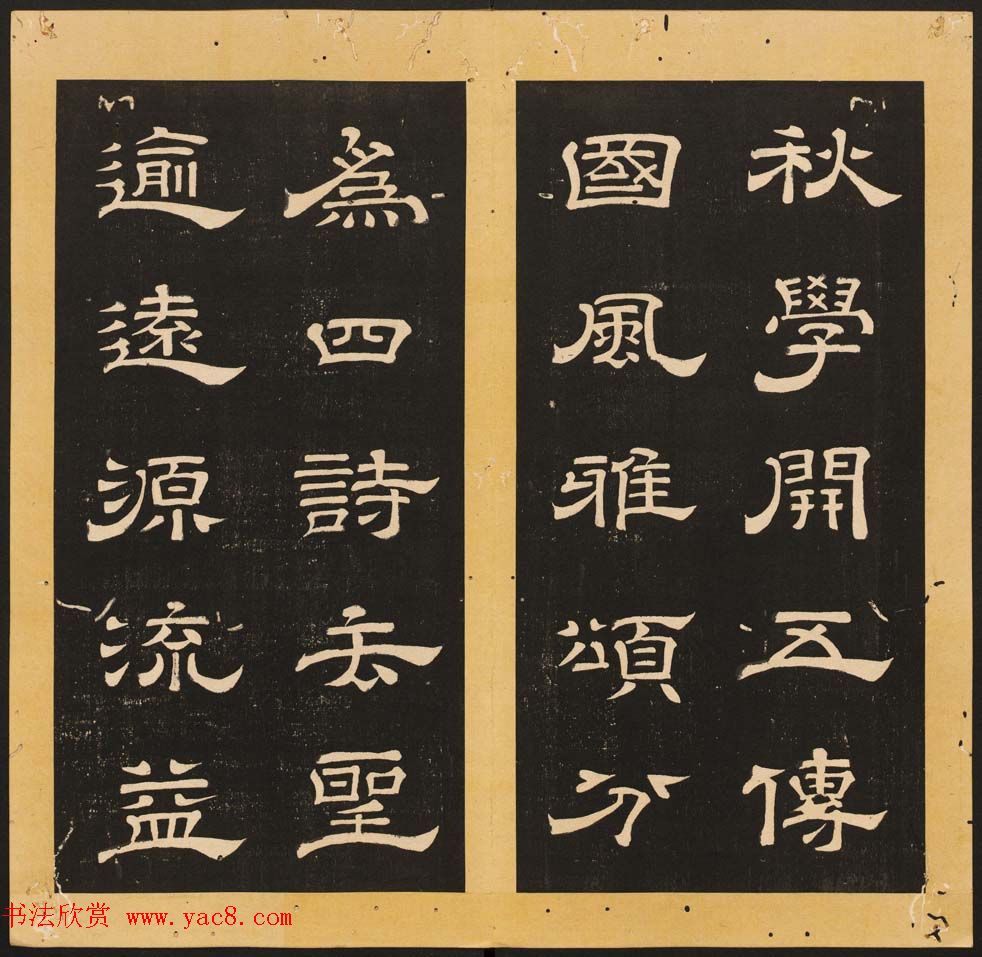 秋學開五傳
國風雅頌分
為四詩去聖
逾遠源流益
书法欣赏 www.yac8.com